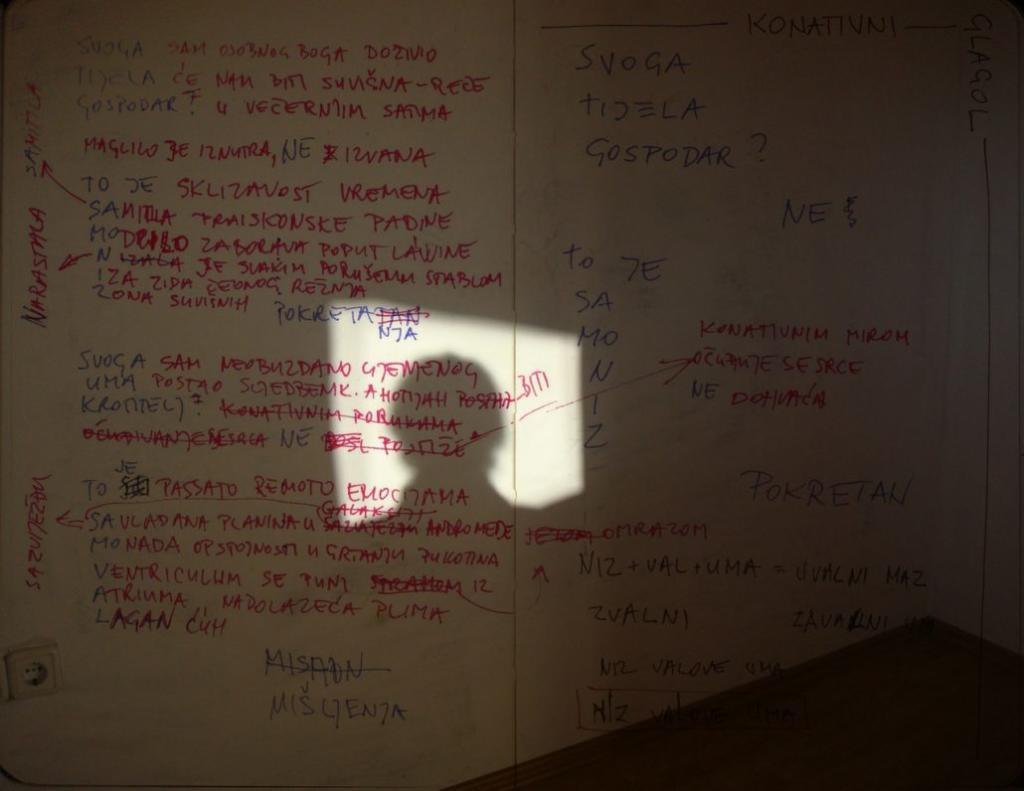 SVOGA SAM OSOBNOG BOGA DOŽIVIO
TIJELA ĆE NAM BITI SUVIŠNA - REČE
GOSPODAR? U VEČERNJIM SATIMA
MAGLILO JE IZNUTRA, NE IZVANA
TO JE SKLIZAVOST VREMENA
SAMITILA TRAISKONSKE PADINE
MODRILO ZABORAVA POPUT LAWINE
NIZALA JE SVAKIM PORUŠENIM STABLOM
IZA ZIDA ČEDNOG REŽNJA
ZONA SUVIŠNIH
POKRETANJA
SAMITILA
NARASTALA
SVOGA SAM NEOBUZDANO VJEMENOG
UMA POSTAO SLJEDBENIK. A HOTIJAH POSTATI BITI
KROTITELJ? KONATIVNIM PORUKAMA
OČUĐIVANJE SRCA NE POSTIŽE
TO JE PASSATO REMOTO EMOCIJAMA
GALAKSIJI
SAVLADANA PLANINA U SAZVIJEŽĐU ANDROMEDE
MONADA OPSTOJNOSTI U GRTANJU PUKOTINA
VENTRICULUM SE PUNI STRAHOM IZ
ATRIUMA, NADOLAZEĆA PLIMA
LAGAN ĆUH
SAZVIJEŽĐU
MISAON
MIŠLJENJA
KONATIVNI
GLAGOL
SVOGA
TIJELA
GOSPODAR?
NE
TO JE
SA
MO
N
I
Z
KONATIVNIM MIROM
OČUĐUJE SE SRCE
NE DOHVAĆA
POKRETAN
OMRAZOM
NIZ + VAL + UMA = UVALNI MAZ
ZVALNI
NIZ VALOVE UMA
NIZ VALOVE UMA